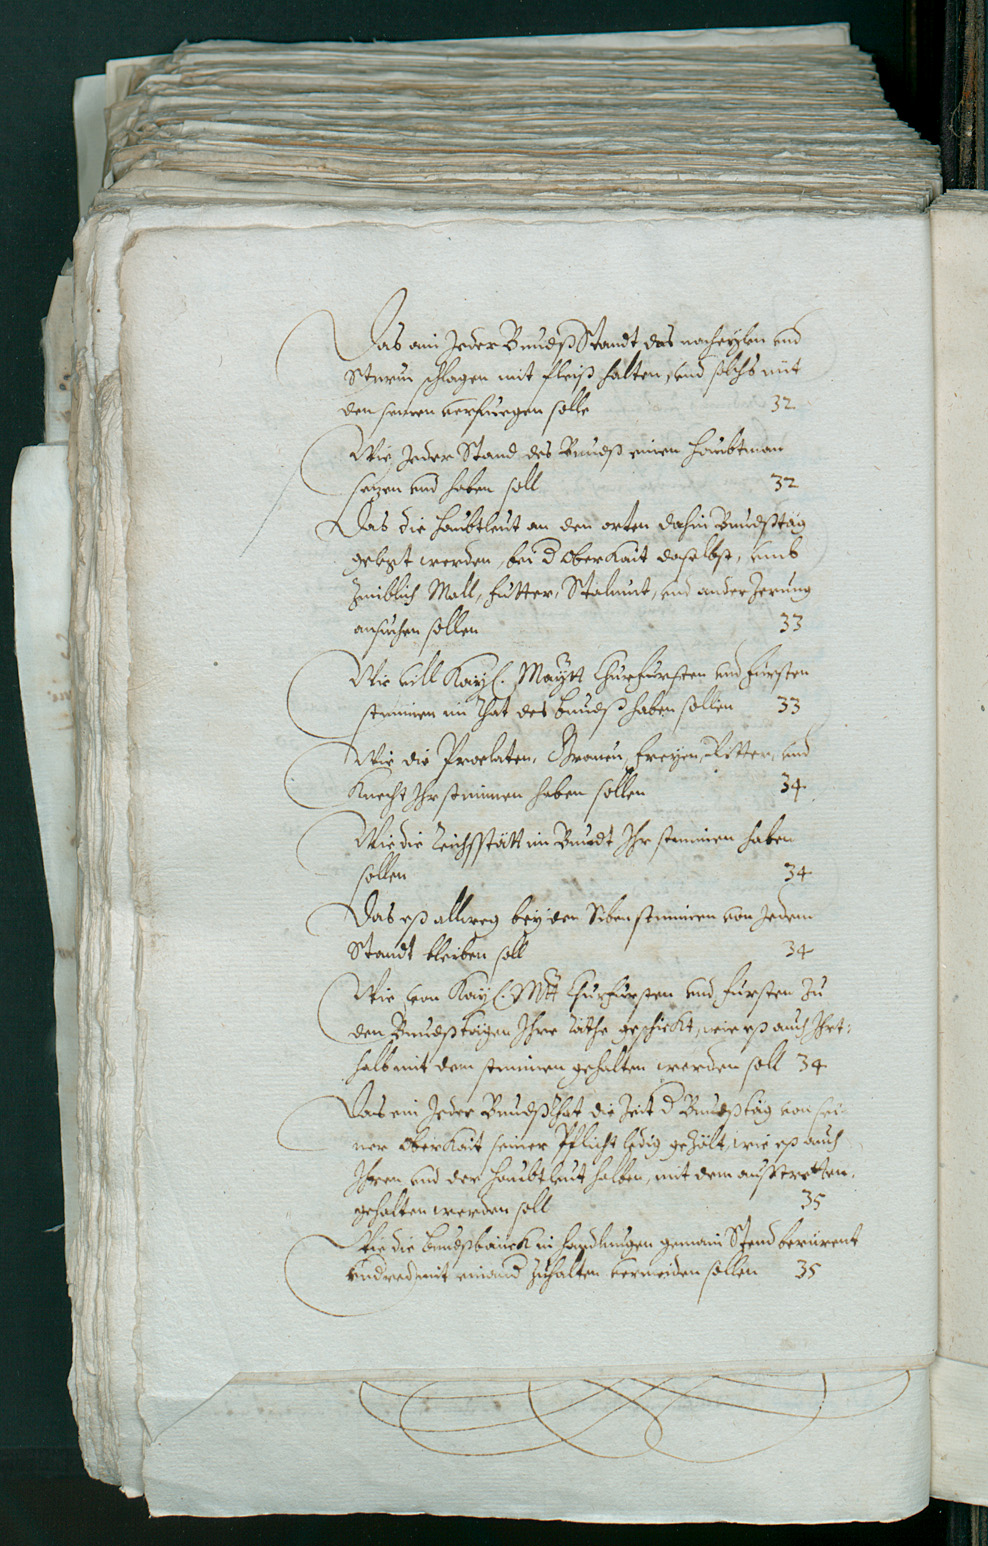 Das ain Jeder Bundß Standt das nacheylen vnd
Sturm schlagen mit fleiß halten, vnd solchs mit
den seinen verfuegen solle 32
Wie Jeder Stand des Bundß einen Haubtman
setzen vnd haben soll 32
Das die Haubtleut an den orten dahin Bundßtäg
gelegt werden, bei d Oberkait daselbst, vmb
Zimblich Mall, futter, Stalmüt, vnd ander Zerung
ansuchen sollen 33
Wie vill Kayß. Maÿtt Churfursten vnd fursten
stimmen im Rhat des Bundß haben sollen 33
Wie die Praelaten, Grauen, freyen, Ritter, vnd
Knecht Ihr stimmen haben sollen 34
Wie die Reichsstätt im Bundt Ihr stimmen haben
sollen 34
Das eß allweg bey den Siben stimmen von Jedem
Standt bleiben soll 34
Wie von Kayß. Mtt Churfursten vnd fursten zu
den Bundßtägen Ihre Räthe geschickt, wie eß auch Ihrt:
halb mit dem stimmen gehalten werden soll 34
Das ein Jeder Bundß Rhat die Zeit d Bundßtäg von sei
ner Oberkait seiner Pflicht ledig gezölt, wie eß auch
Ihren vnd der Haubtleut halben, mit dem ausstretten
gehalten werden soll 35
Wie die Bundß in handlungen gemain Stend berürent
vnderred mit einand zuhalten vermeiden sollen 35